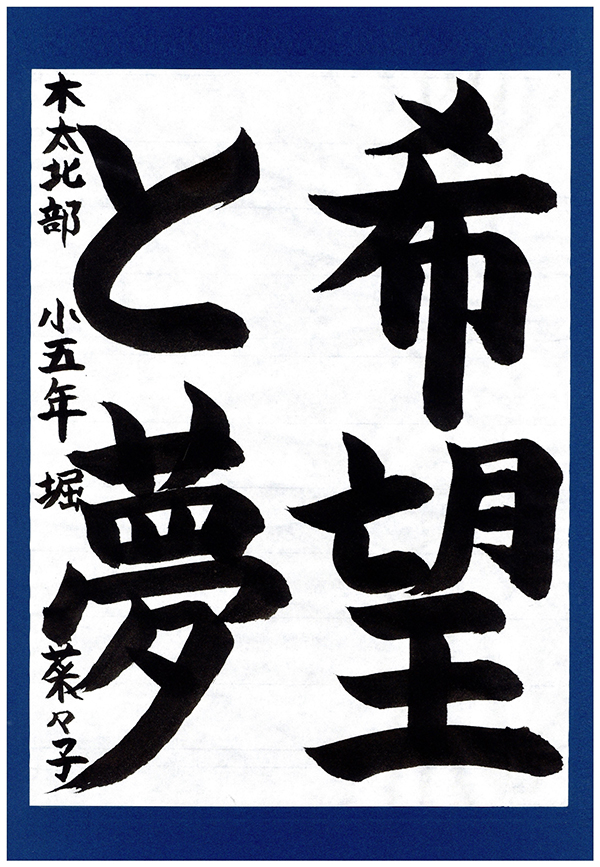 希望
と夢
木太北部 小五年 堀 菜々子